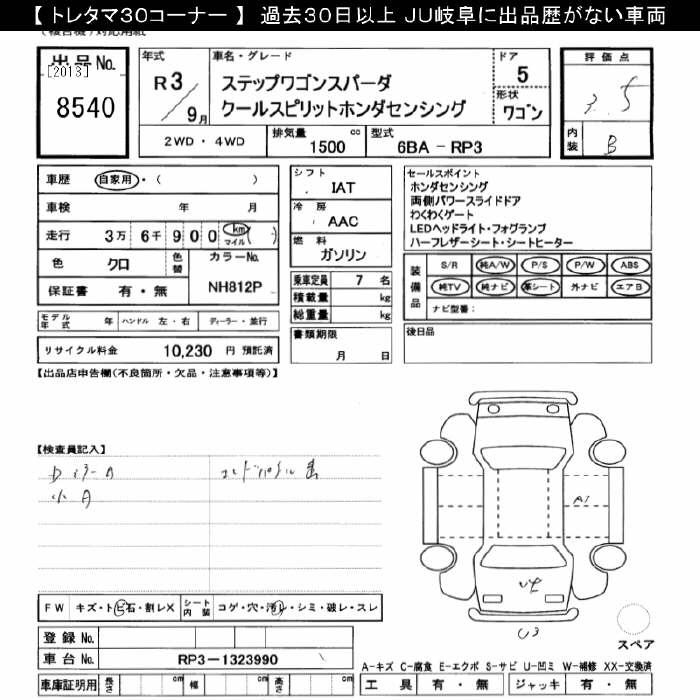 【 トレタマ30コーナー 】 過去30日以上 JU岐阜に出品歴がない車両
出品No.
[2013]
8540
年式
R 3
9月
車名・グレード
ステップワゴンスパーダ
クールスピリットホンダセンシング
ドア
5
形状
ワゴン
評価点
3.5
内装
B
2WD・4WD
排気量
1500 cc
型式
6BA - RP3
車歴 自家用・( )
車検 年 月
走行 3万 6千 9 0 0 km マイル ( )
色 クロ
色替
カラーNo.
NH812P
保証書 有・無
シフト
IAT
冷房
AAC
燃料
ガソリン
乗車定員 7 名
積載量 kg
総重量 kg
書類期限
月 日
セールスポイント
ホンダセンシング
両側パワースライドドア
わくわくゲート
LEDヘッドライト・フォグランプ
ハーフレザーシート・シートヒーター
装備品
S/R 純A/W P/S P/W ABS
純TV 純ナビ 革シート 外ナビ エアB
ナビ型番:
後日品
モデル年式 年 ハンドル 左・右 ディーラー・並行
リサイクル料金 10,230 円 預託済
【出品店申告欄(不良箇所・欠品・注意事項等)】
【検査員記入】
小A
A1
U3
FW キズ・トビ石・割レX
シート内装 コゲ・穴・汚レ・シミ・破レ・スレ
登録No.
車台No. RP3-1323990
スペア
A-キズ C-腐食 E-エクボ S-サビ U-凹ミ W-補修 XX-交換済
車庫証明用 長さ cm 幅 cm 高さ cm
工具 有・無 ジャッキ 有・無